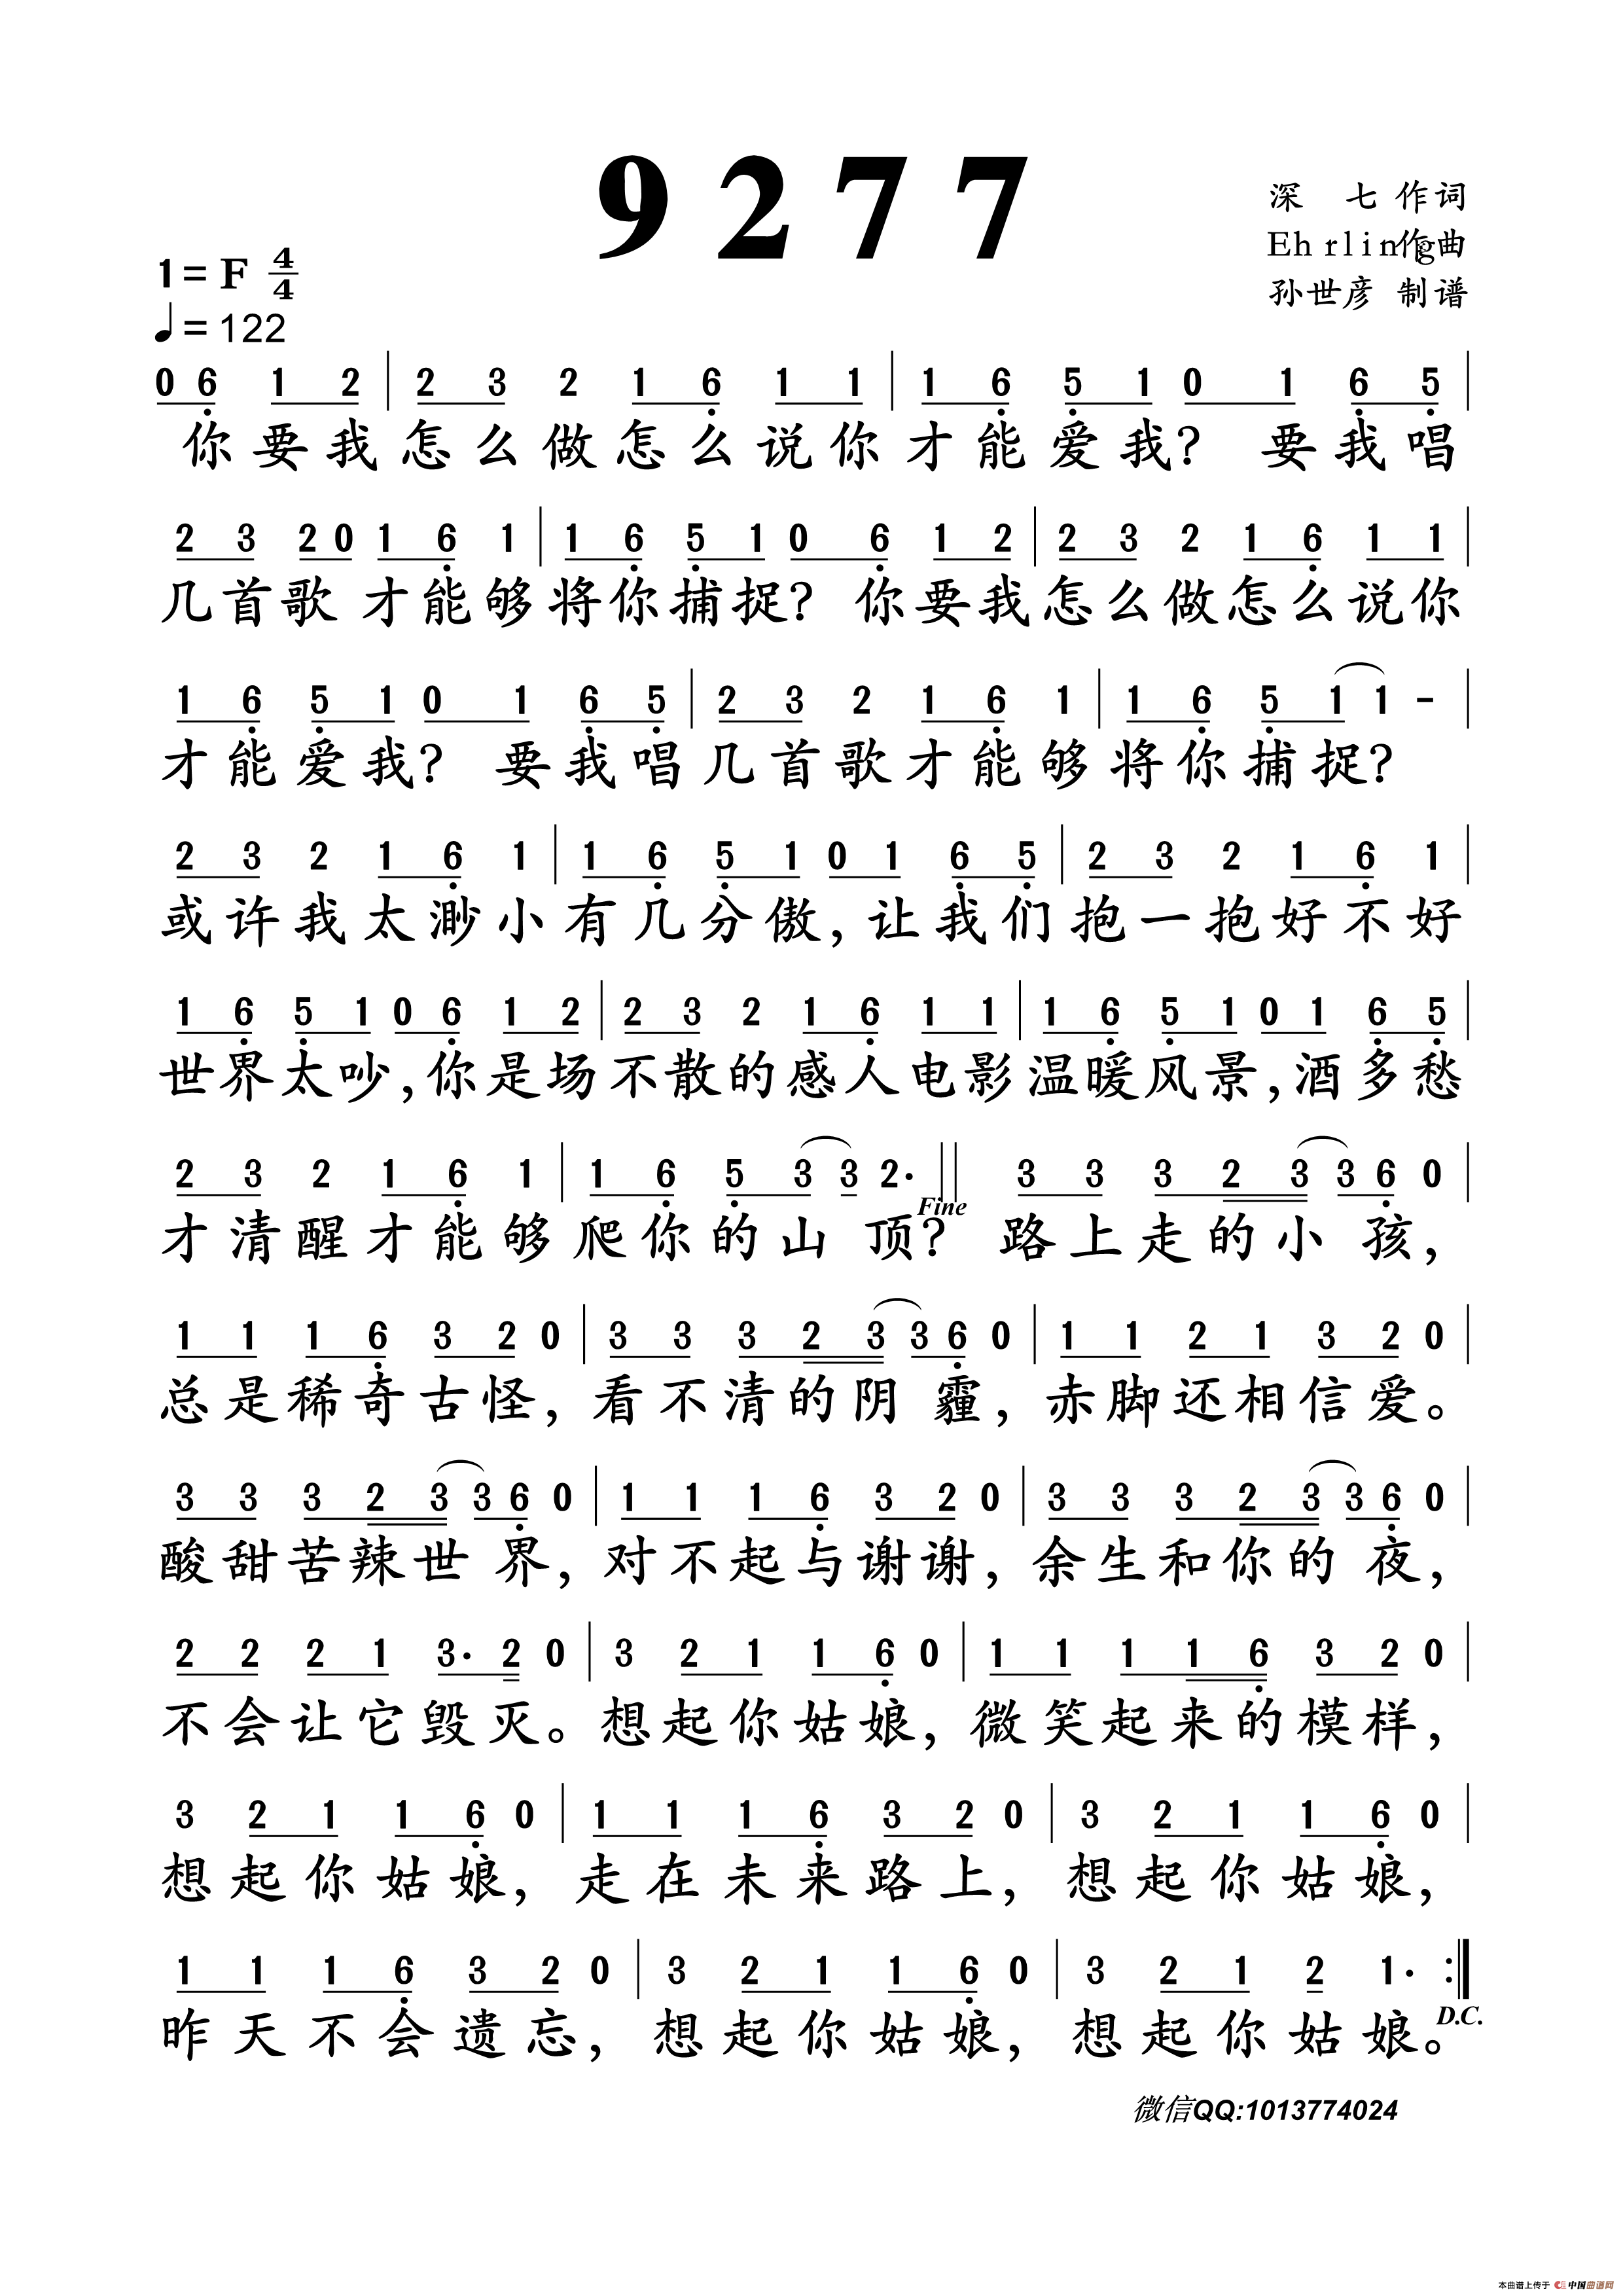 9277
深 七 作词
Ehrling作曲
孙世彦 制谱
1=F 4/4
♩=122
0 6 1 2 | 2 3 2 1 6 1 1 | 1 6 5 1 0 1 6 5 |
你要我怎么做怎么说你才能爱我? 要我唱
2 3 2 0 1 6 1 | 1 6 5 1 0 6 1 2 | 2 3 2 1 6 1 1 |
几首歌 才能够将你捕捉? 你要我怎么做怎么说你
1 6 5 1 0 1 6 5 | 2 3 2 1 6 1 | 1 6 5 1 1 - |
才能爱我? 要我唱几首歌才能够将你捕捉?
2 3 2 1 6 1 | 1 6 5 1 0 1 6 5 | 2 3 2 1 6 1 |
或许我太渺小有几分傲,让我们抱一抱好不好
1 6 5 1 0 6 1 2 | 2 3 2 1 6 1 1 | 1 6 5 1 0 1 6 5 |
世界太吵,你是场不散的感人电影温暖风景,酒多愁
2 3 2 1 6 1 | 1 6 5 3 3 2· || 3 3 3 2 3 3 6 0 |
Fine
才清醒才能够爬你的山顶? 路上走的小孩,
1 1 1 6 3 2 0 | 3 3 3 2 3 3 6 0 | 1 1 2 1 3 2 0 |
总是稀奇古怪,看不清的阴霾,赤脚还相信爱。
3 3 3 2 3 3 6 0 | 1 1 1 6 3 2 0 | 3 3 3 2 3 3 6 0 |
酸甜苦辣世界,对不起与谢谢,余生和你的夜,
2 2 2 1 3· 2 0 | 3 2 1 1 6 0 | 1 1 1 1 6 3 2 0 |
不会让它毁灭。想起你姑娘,微笑起来的模样,
3 2 1 1 6 0 | 1 1 1 6 3 2 0 | 3 2 1 1 6 0 |
想起你姑娘,走在未来路上,想起你姑娘,
1 1 1 6 3 2 0 | 3 2 1 1 6 0 | 3 2 1 2 1· :||
D.C.
昨天不会遗忘,想起你姑娘,想起你姑娘。
微信QQ:1013774024
本曲谱上传于 中国曲谱网